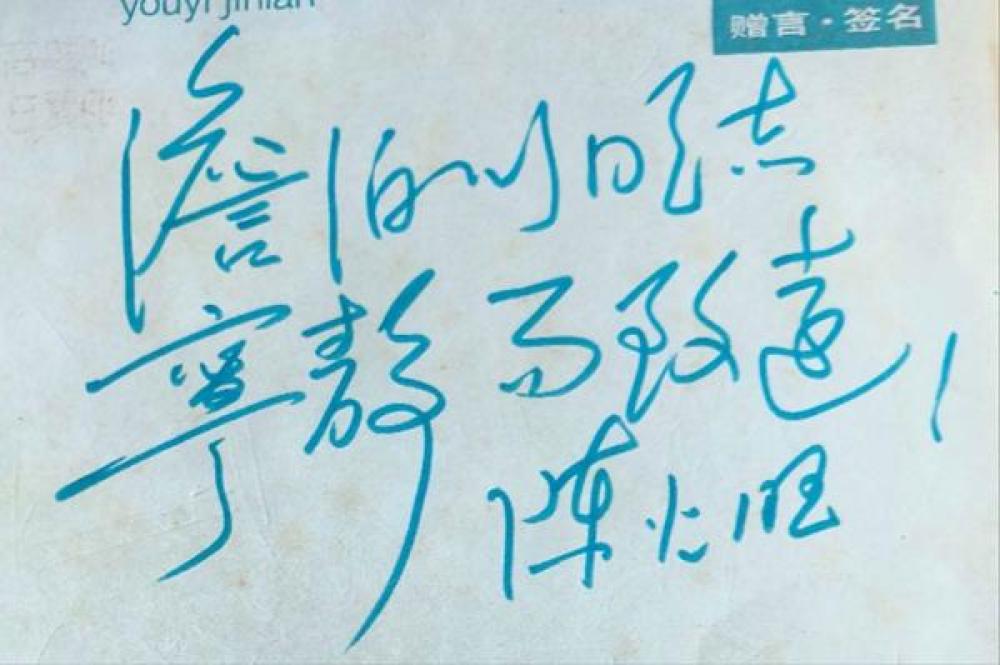 youyi jinian
赠言·签名
澹泊以明志
寧静而致遠！
陈火旺